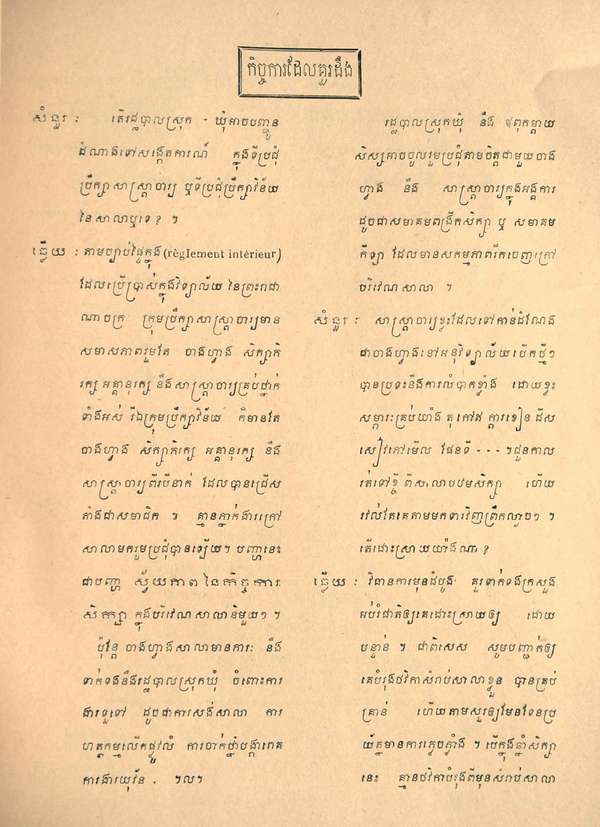 កិច្ចការដែលគួរដឹង
សំនួរ : តើរដ្ឋបាលស្រុក - ឃុំអាចបញ្ជូន
ដំណាងទៅសង្កេតការណ៍ ក្នុងទីប្រជុំ
ប្រឹក្សាសាស្ត្រាចារ្យ ឬទីប្រជុំប្រឹក្សាវិន័យ
នៃសាលាឬទេ? ។
ឆ្លើយ : តាមច្បាប់ផ្ទៃក្នុង (règlement intérieur)
ដែលប្រើប្រាស់ក្នុងវិទ្យាល័យ នៃព្រះរាជា
ណាចក្រ ក្រុមប្រឹក្សាសាស្ត្រាចារ្យមាន
សមាសភាពរួមតែ ចាងហ្វាង សិក្សាភិ
រក្ស អគ្គានុរក្ស នឹងសាស្ត្រាចារ្យគ្រប់ថ្នាក់
ទាំងអស់ រីឯក្រុមប្រឹក្សាវិន័យ ក៏មានតែ
ចាងហ្វាង សិក្សាភិរក្ស អគ្គានុរក្ស នឹង
សាស្ត្រាចារ្យពីរបីនាក់ ដែលបានជ្រើស
តាំងជាសមាជិក ។ គ្មានភ្នាក់ងារក្រៅ
សាលាមករួមប្រជុំបានឡើយ។ បញ្ហានេះ
ជាបញ្ហា ស្វ័យភាព នៃកិច្ចការ
សិក្សា ក្នុងបរិវេណសាលានិមួយៗ ។
ប៉ុន្តែ ចាងហ្វាងសាលាមានការៈ នឹង
ទាក់ទងនឹងរដ្ឋបាលស្រុកឃុំ ចំពោះការ
ងារទូទៅ ដូចជាការសង់សាលា ការ
ហត្ថកម្មលើកផ្លូវលំ ការចាក់ថ្នាំបង្ការរោគ
ការងារយុវ័ន . ។ល។
រដ្ឋបាលស្រុកឃុំ នឹង ឪពុកម្តាយ
សិស្សអាចចូលរួមប្រជុំតាមចិត្តជាមួយចាង
ហ្វាង នឹង សាស្ត្រាចារ្យក្នុងអង្គការ
ដូចជាសមាគមពង្រឹកសិក្សា ឬ សមាគម
កីឡា ដែលមានសកម្មភាពរីកចេញក្រៅ
បរិវេណសាលា ។
សំនួរ : សាស្ត្រាចារ្យខ្លះដែលទៅកាន់ដំណែង
ជាចាងហ្វាងនៅអនុវិទ្យាល័យបើកថ្មីៗ
បានប្រទះនឹងការលំបាកខ្លាំង ដោយខ្វះ
សម្ភារៈគ្រប់យ៉ាង តុ កៅអី ក្តារខៀន ដីស
សៀវភៅមើល ផែនទី - - - ។ជួនកាល
រត់ទៅខ្ចី ពីសាលាបឋមសិក្សា ហើយ
រវល់តែគេតាមមកទារវិញព្រឹកល្ងាចៗ ។
តើដោះស្រាយយ៉ាងណា?
ឆ្លើយ : វិធានការមុនដំបូង គួរទាក់ទងក្រសួង
អប់រំជាតិឲ្យគេដោះស្រាយឲ្យ ដោយ
បន្ទាន់ ។ ជាពិសេស សូមបញ្ជាក់ឲ្យ
គេបំរុងថវិកាសំរាប់សាលាខ្លួន បានគ្រប់
គ្រាន់ ហើយតាមសួរឲ្យមែនទែនប្រ
យ័ត្នមានការភ្លេចភ្លាំង ។ បើក្នុងឆ្នាំសិក្សា
នេះ គ្មានថវិកាបំរុងពីមុនសំរាប់សាលា